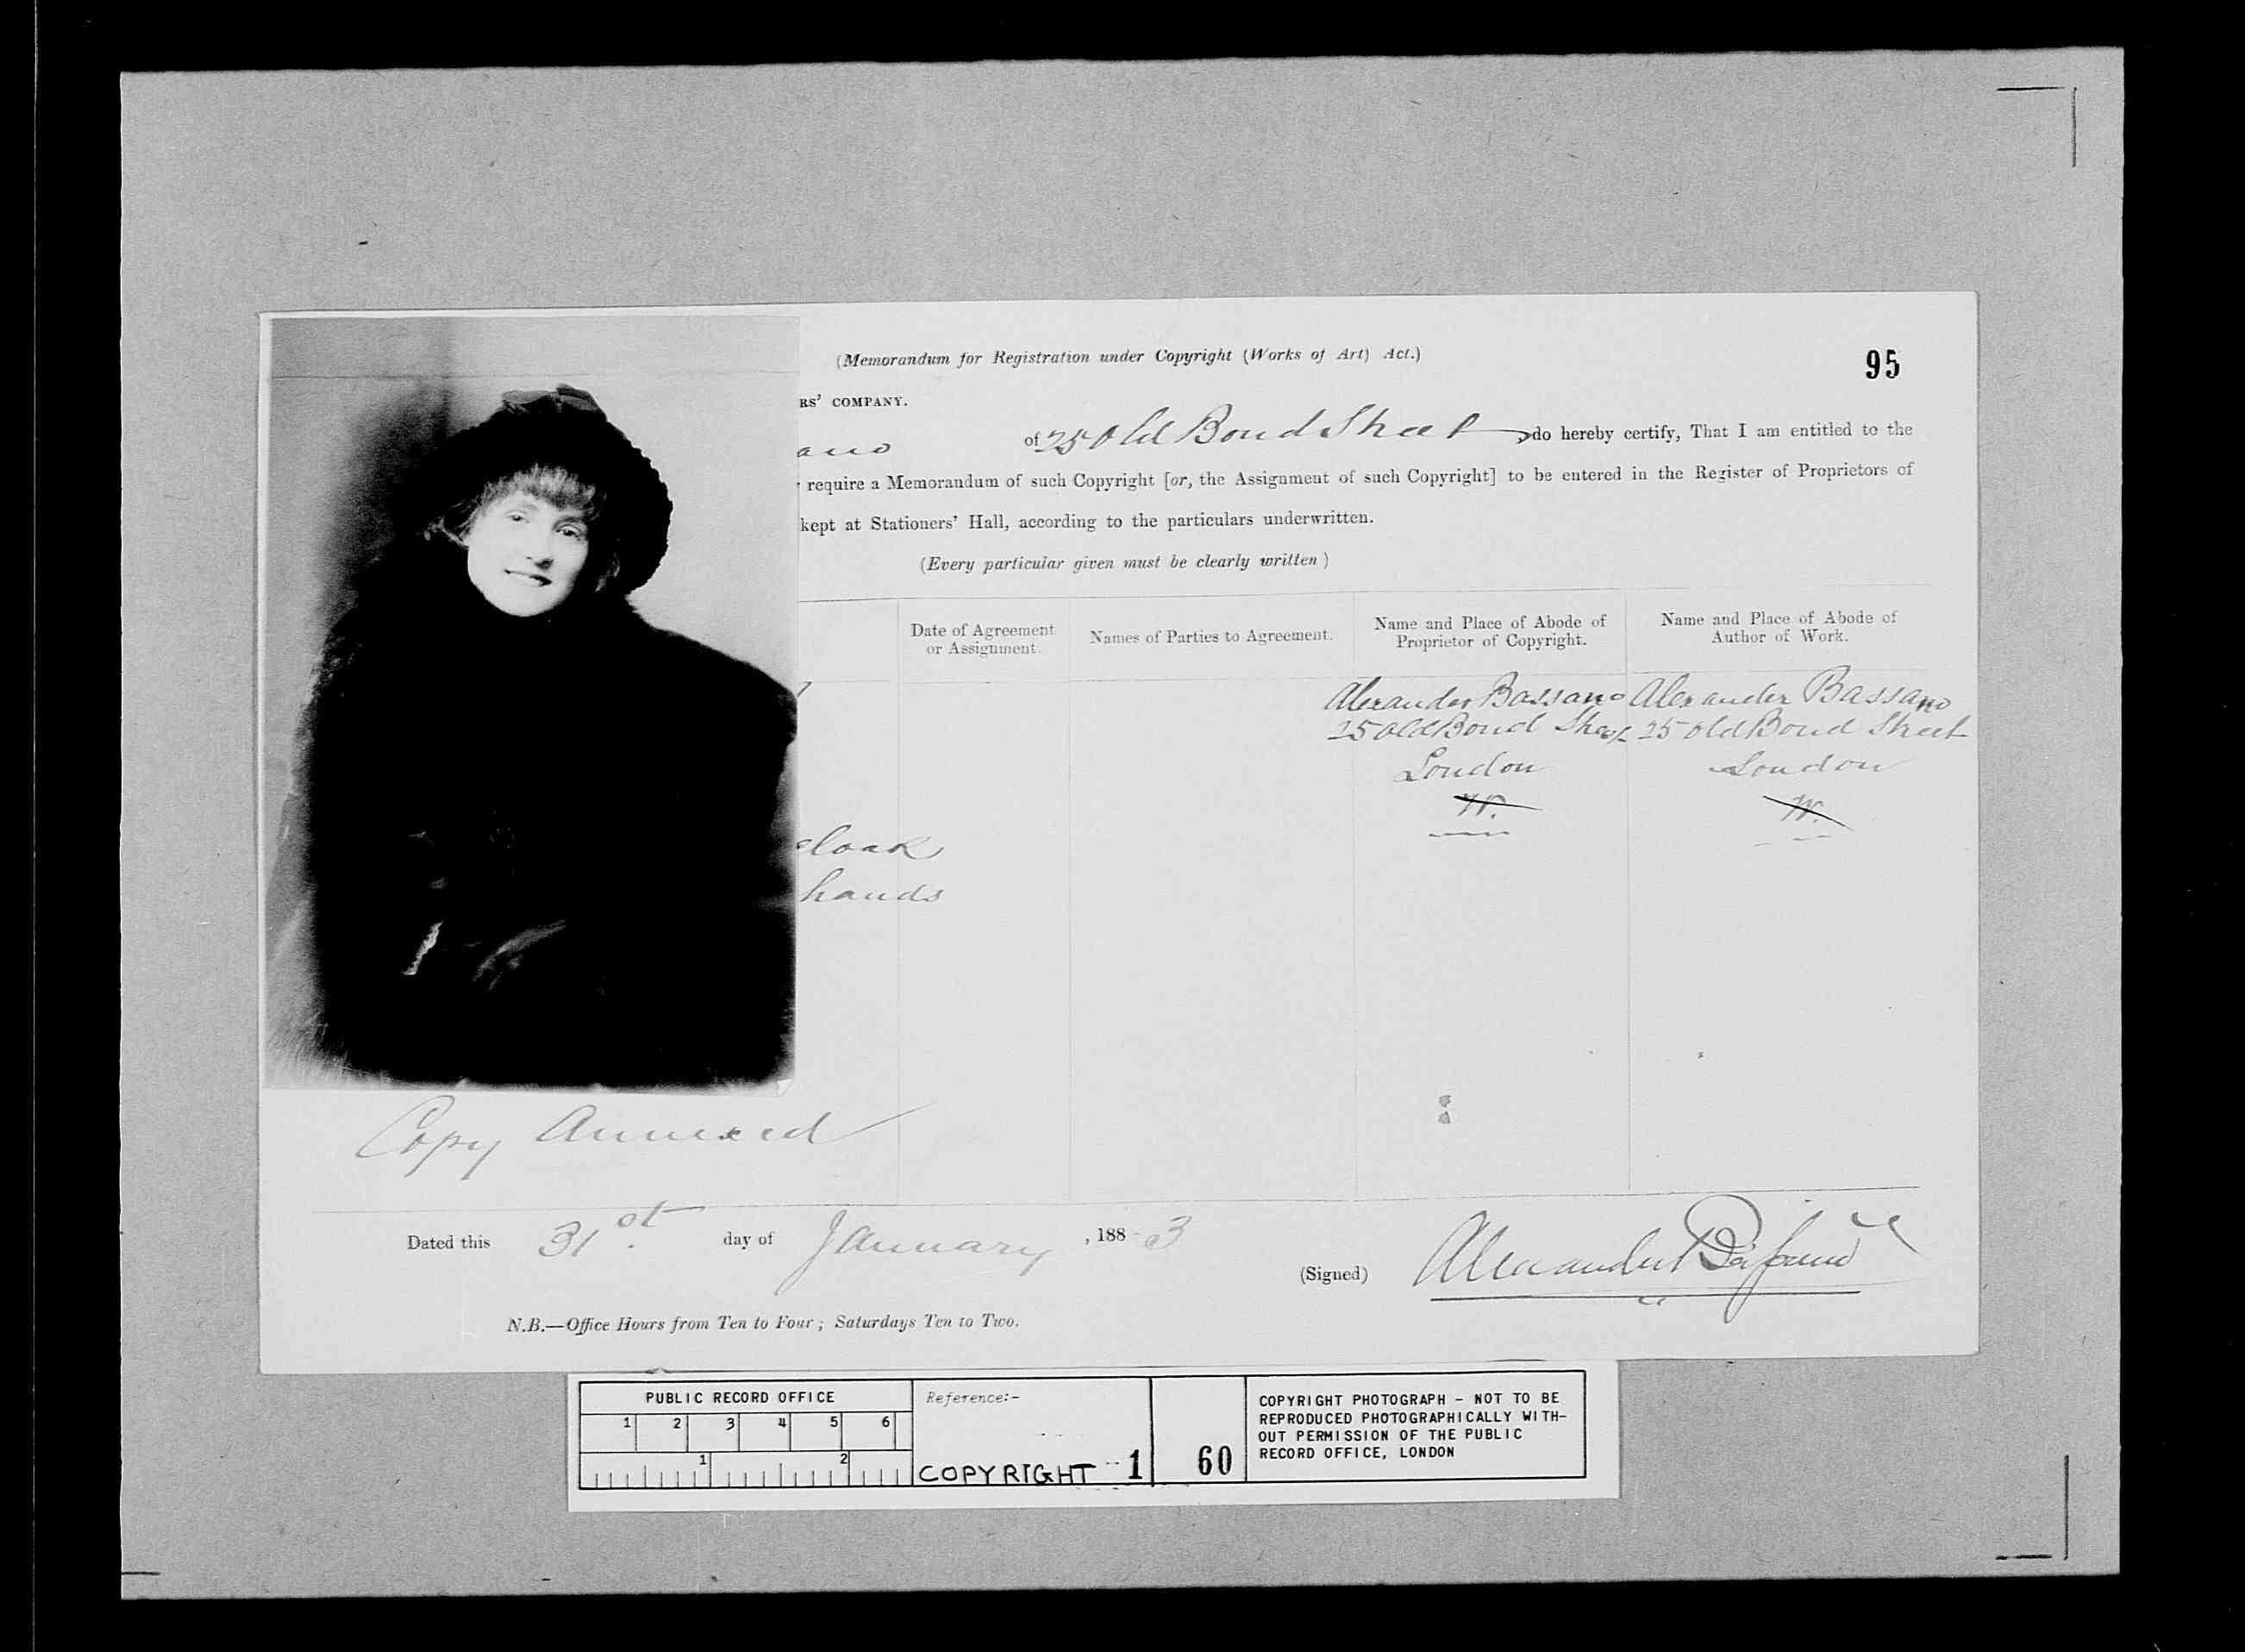 (Memorandum for Registration under Copyright (Works of Art) Act.)
95
RS' COMPANY.
ano of 25 Old Bond Street do hereby certify, That I am entitled to the
require a Memorandum of such Copyright [or, the Assignment of such Copyright] to be entered in the Register of Proprietors of
kept at Stationers' Hall, according to the particulars underwritten.
(Every particular given must be clearly written)
Date of Agreement
or Assignment.
Names of Parties to Agreement.
Name and Place of Abode of
Proprietor of Copyright.
Name and Place of Abode of
Author of Work.
Alexander Bassano
25 Old Bond Street
London
W.
Alexander Bassano
25 Old Bond Street
London
W.
cloak
hands
Copy Annexed
Dated this 31st day of January, 1883
(Signed) Alexander Bassano
N.B.—Office Hours from Ten to Four; Saturdays Ten to Two.
PUBLIC RECORD OFFICE
1 2 3 4 5 6
1 2
Reference:-
COPYRIGHT 1 60
COPYRIGHT PHOTOGRAPH - NOT TO BE
REPRODUCED PHOTOGRAPHICALLY WITH-
OUT PERMISSION OF THE PUBLIC
RECORD OFFICE, LONDON